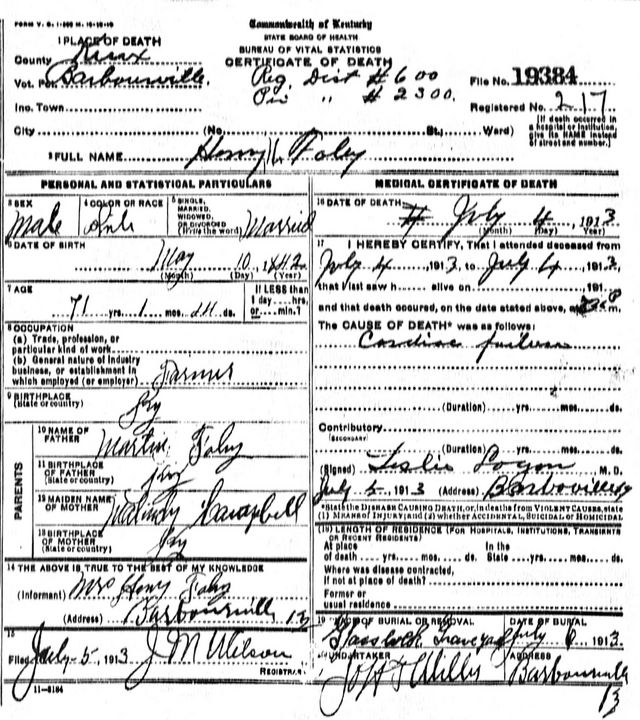 FORM V. S. 1-
Commonwealth of Kentucky
STATE BOARD OF HEALTH
BUREAU OF VITAL STATISTICS
CERTIFICATE OF DEATH
1 PLACE OF DEATH
County Knox
Vot. Pct. Barbourville
Reg Dist # 600
Pri " # 2300.
File No. 19384
Registered No. 217
Inc. Town
City (No. St., Ward)
[If death occurred in a hospital or institution, give its NAME instead of street and number.]
2 FULL NAME Henry Foley
PERSONAL AND STATISTICAL PARTICULARS
3 SEX
Male
4 COLOR OR RACE
5 SINGLE, MARRIED, WIDOWED, OR DIVORCED (Write the word) Married
6 DATE OF BIRTH
May 10, 1842
(Month) (Day) (Year)
7 AGE
71 yrs. 1 mos. 24 ds.
If LESS than 1 day....hrs. or....min.?
8 OCCUPATION
(a) Trade, profession, or
particular kind of work
(b) General nature of industry
business, or establishment in
which employed (or employer) Farmer
9 BIRTHPLACE
(State or country) Ky
PARENTS
10 NAME OF FATHER Martin Foley
11 BIRTHPLACE OF FATHER
(State or country) Ky
12 MAIDEN NAME OF MOTHER Malindy Campbell
13 BIRTHPLACE OF MOTHER
(State or country) Ky
14 THE ABOVE IS TRUE TO THE BEST OF MY KNOWLEDGE
(Informant) Mrs Henry Foley
(Address) Barbourville
15
Filed July 5 1913 J M Wilson
REGISTRAR
11-3184
MEDICAL CERTIFICATE OF DEATH
16 DATE OF DEATH
July 4, 1913
(Month) (Day) (Year)
17 I HEREBY CERTIFY, That I attended deceased from
July 4 1913, to July 4 1913,
that I last saw h alive on 191
and that death occured, on the date stated above, at m.
The CAUSE OF DEATH* was as follows:
Cardiac failure
(Duration) yrs. mos. ds.
Contributory
(SECONDARY)
(Duration) yrs. mos. ds.
(Signed) Leslie Logan M. D.
July 5, 1913 (Address) Barbourville Ky
*State the DISEASE CAUSING DEATH, or, in deaths from VIOLENT CAUSES, state
(1) MEANS OF INJURY; and (2) whether ACCIDENTAL, SUICIDAL or HOMICIDAL
(18) LENGTH OF RESIDENCE (FOR HOSPITALS, INSTITUTIONS, TRANSIENTS OR RECENT RESIDENTS)
At place of death yrs. mos. ds. In the State yrs. mos. ds.
Where was disease contracted,
if not at place of death?
Former or
usual residence
19 PLACE OF BURIAL OR REMOVAL
Graveyard
DATE OF BURIAL
July 6, 1913
UNDERTAKER
ADDRESS
Barbourville